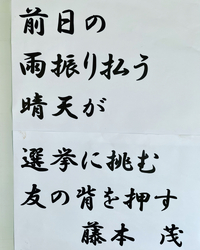 前日の
雨振り払う
晴天が
選挙に挑む
友の背を押す
藤本 茂